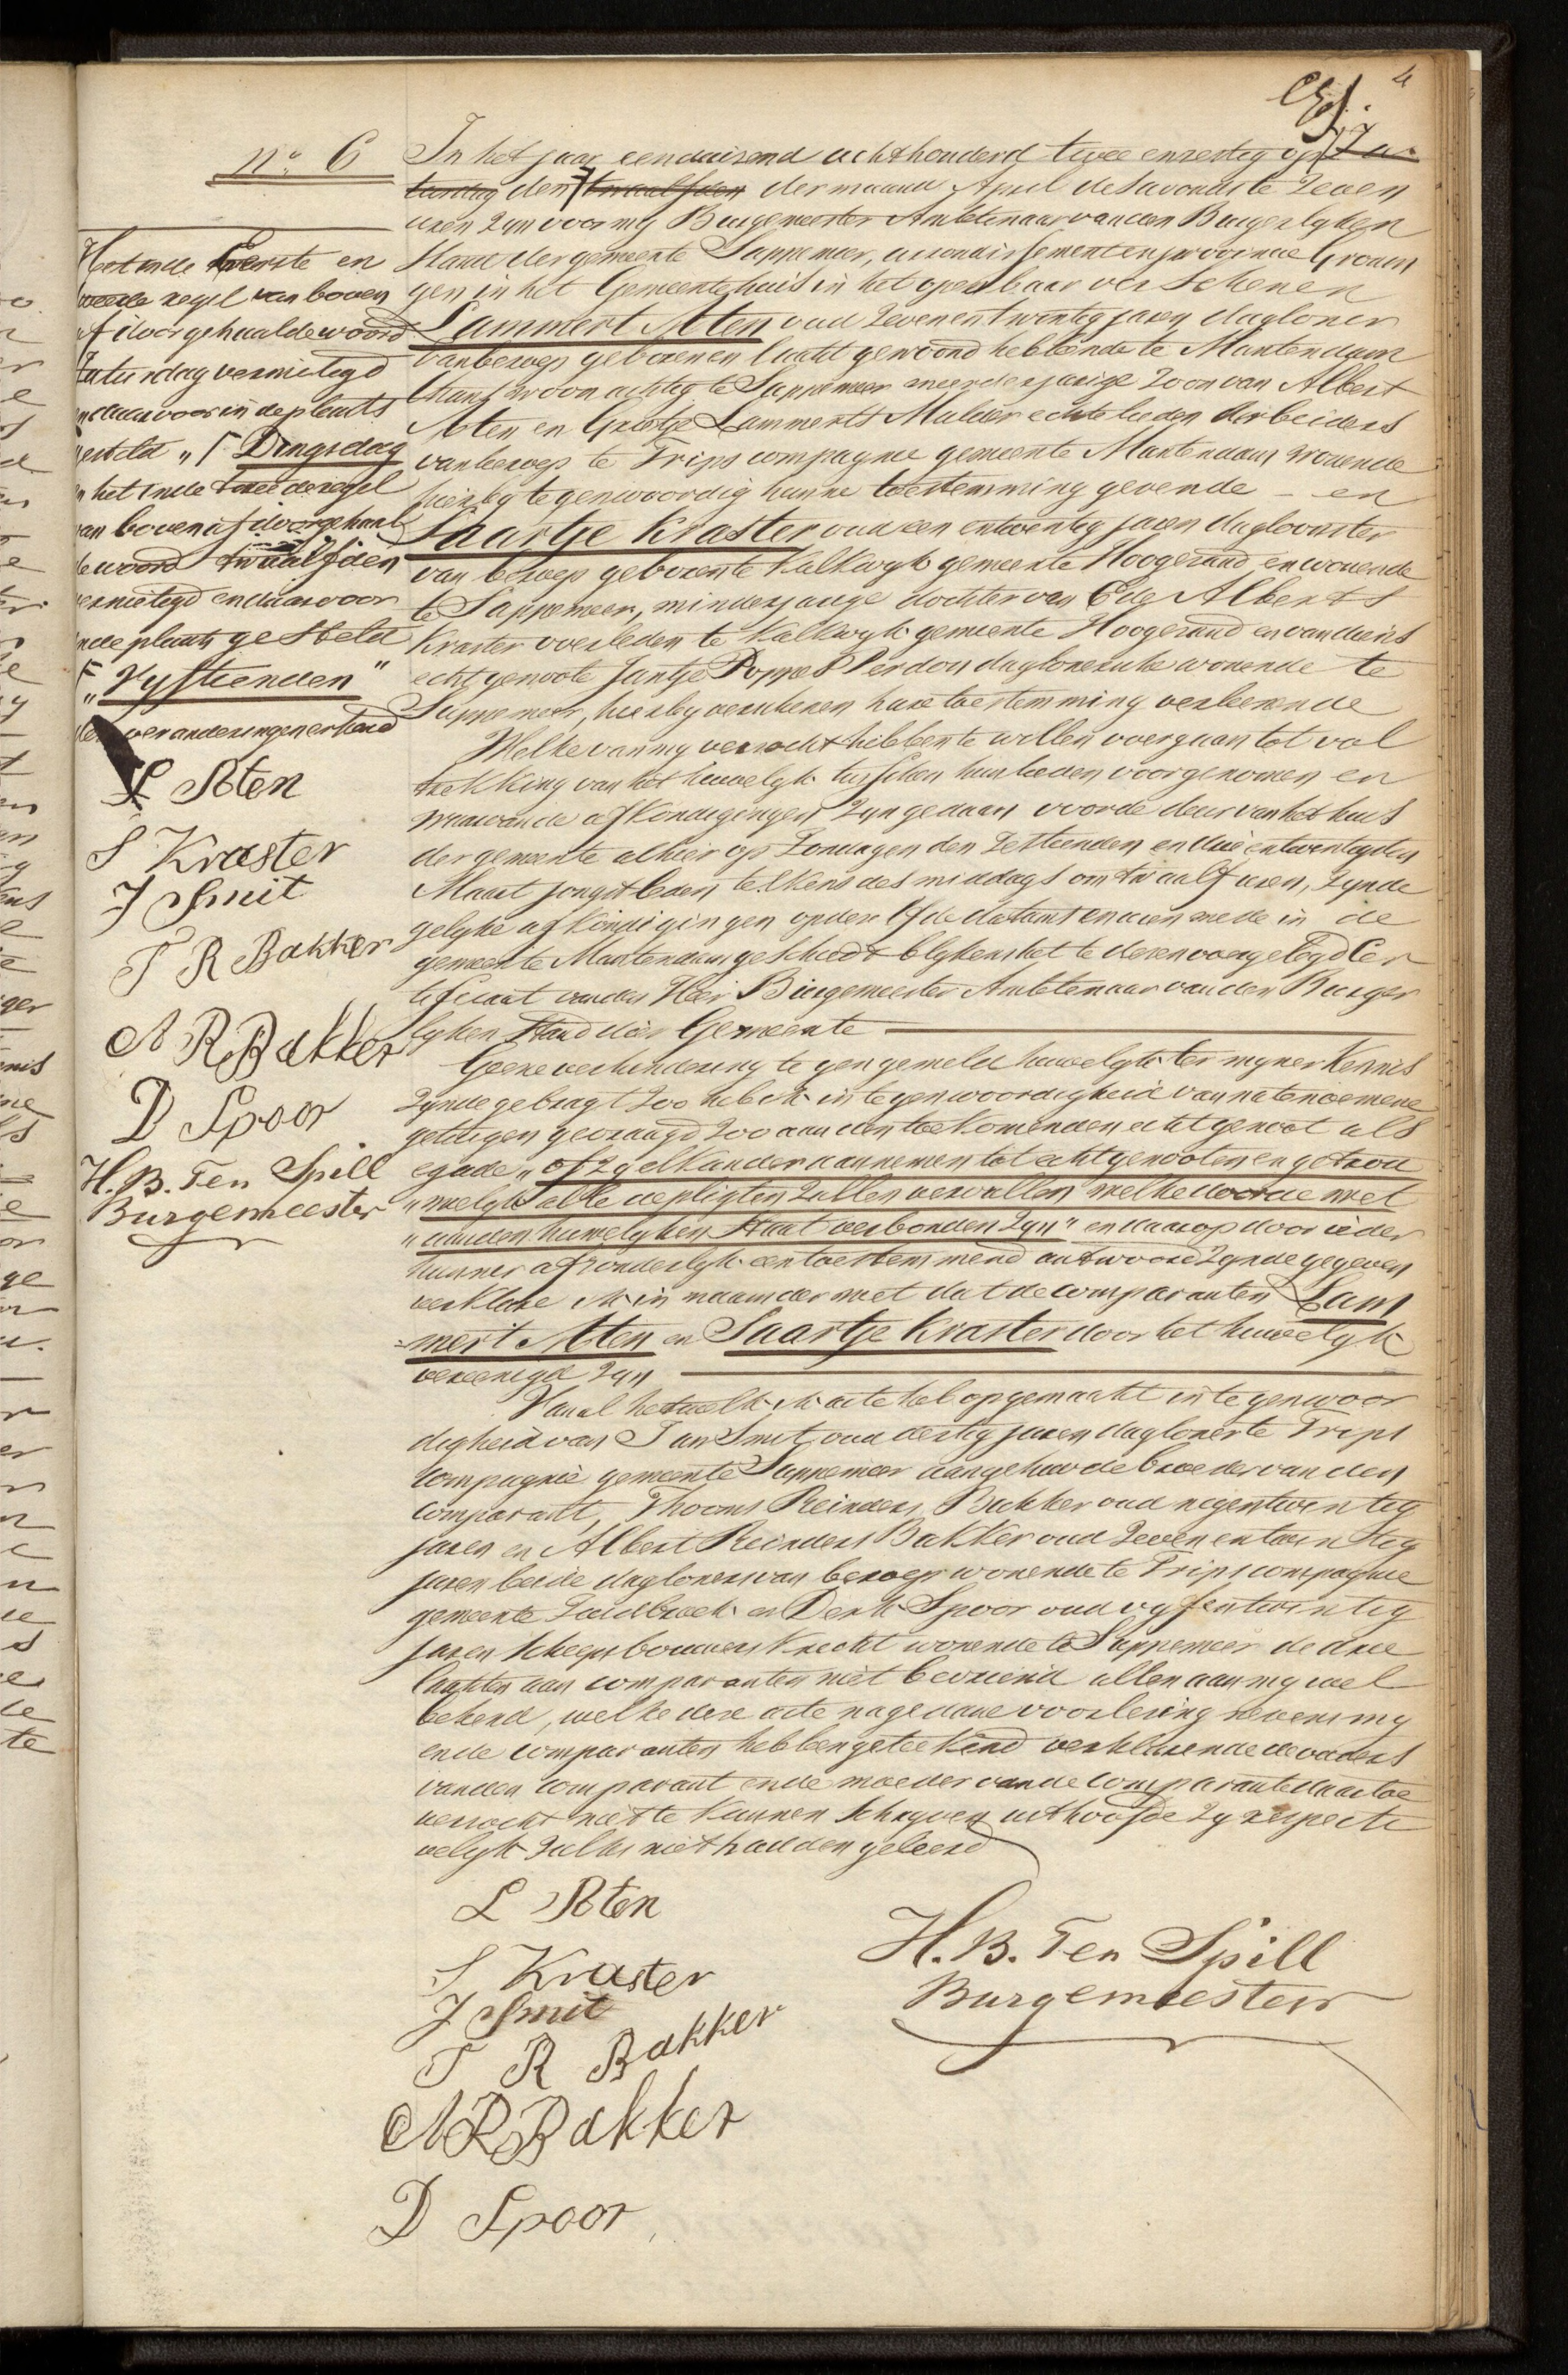 4
No 6
In het jaar eenduizend achthonderd twee en zestig op Za
turdag den twaalfden der maand April des avonds te zeven
uren zyn voor my Burgemeester Ambtenaar van den Burgerlyken
Stand der gemeente Sappemeer, arrondissement en provincie Gronin
gen in het Gemeentehuis in het openbaar verschenen
Lammert Aten oud zevenentwintig jaren dagloner
van beroep geboren en laatst gewoond hebbende te Muntendam
thans woonachtig te Sappemeer meerderjarige zoon van Albert
Aten en Grietje Lammerts Mulder echtelieden Arbeiders
van beroep te Tripscompagnie gemeente Muntendam wonende
hierby tegenwoordig hunne toestemming gevende - en
Saartje Kraster oud een entwintig jaren dagloonster
van beroep geboren te Kalkwyk gemeente Hoogezand en wonende
te Sappemeer, minderjarige dochter van Ede Alberts
Kraster overleden te Kalkwyk gemeente Hoogezand en van diens
echtgenoote Jantje Poppes Perdon daglonersche wonende te
Sappemeer, hierby verschenen hare toestemming verleenende
Welke van my verzocht hebben te willen overgaan tot vol
trekking van het huwelyk tusschen hun beiden voorgenomen en
waarvan de afkondigingen zyn gedaan voor de deur van het huis
der gemeente alhier op Zondagen den zestienden en drie entwintigsten
Maart jongstleden telkens des middags om twaalf uren, zynde
gelyke afkondigingen op dezelfde datums en uren mede in de
gemeente Muntendam geschied blykens het te dezen overgelegd Cer
tificaat van den Heer Burgemeester Ambtenaar van den Burger
lyken Stand dier Gemeente
Geene verhindering tegen gemeld huwelyk ter myner kennis
zynde gebragt zoo heb ik in tegenwoordigheid van na te noemene
getuigen gevraagd zoo aan den toekomenden echtgenoot als
egade „of zy elkander aannemen tot echtgenooten en getrou
„welyk alle de pligten zullen vervullen welke door de wet
„aan den huwelyken Staat verbonden zyn" en daarop door ieder
hunner afzonderlyk een toestemmend antwoord zynde gegeven
verklare ik in naam der wet dat de comparanten Lam
=mert Aten en Saartje Kraster door het huwelyk
vereenigd zyn
Van al hetwelk ik acte heb opgemaakt in tegenwoor
digheid van Jan Smit oud dertig jaren dagloner te Trips
compagnie gemeente Sappemeer aangehuwde broeder van den
comparant, Thooms Reinders Bakker oud negentwintig
jaren en Albert Reinders Bakker oud zeven entwintig
jaren beide dagloners van beroep wonende te Tripscompagnie
gemeente Zuidbroek en Derk Spoor oud vyfentwintig
jaren Scheepsbouwers knecht wonende te Sappemeer de drie
laatsten aan comparanten niet bevriend allen aan my wel
bekend, welke deze acte na gedane voorlezing nevens my
en de comparanten hebben geteekend verklarende de ouders
van den comparant en de moeder van de comparante daartoe
verzocht niet te kunnen schryven uit hoofde zy respecti
velyk zulks niet hadden geleerd
L Aten
S Kraster
J Smit
T R Bakker
A R Bakker
D Spoor
H. B. Ten Spill
Burgemeester
Het in de Eerste en
tweede regel van boven
af doorgehaalde woord
Zaturdag vernietigd
en daarvoor in de plaats
gesteld „ Dingsdag
in het in de tweede regel
van boven af doorgehaal
de woord twaalfden
vernietigd en daarvoor
in de plaats gesteld
„Vyftienden"
veranderingen erkend
L Aten
S Kraster
J Smit
T R Bakker
A R Bakker
D Spoor
H. B. Ten Spill
Burgemeester